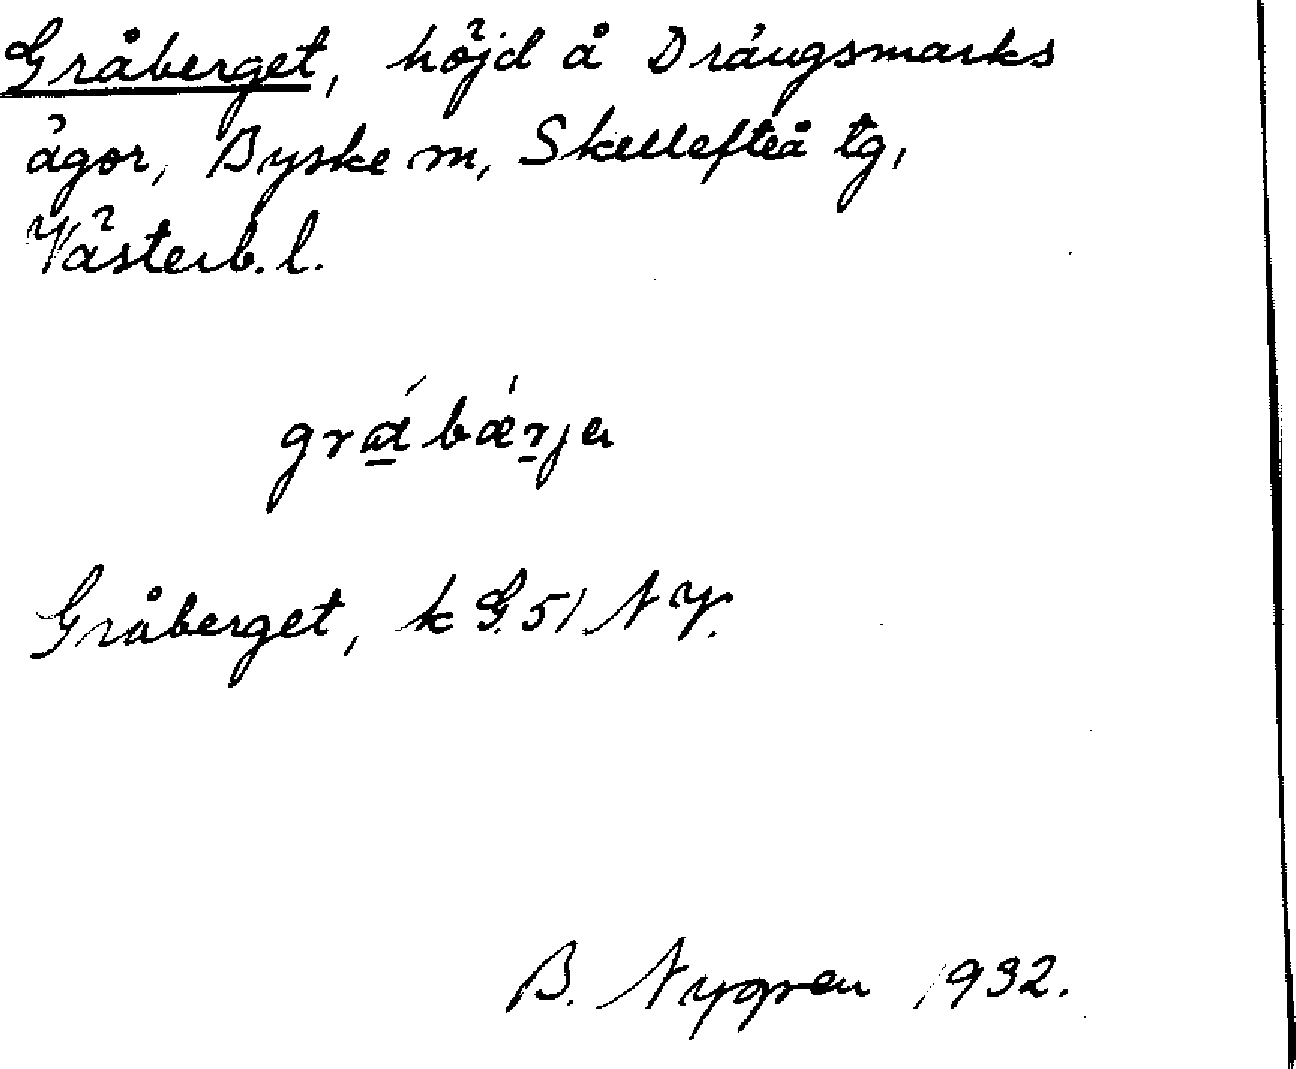 Gråberget, höjd å Drängsmarks
ägor, Byske sn, Skellefteå tg,
Västerb. l.
grábǽrja
Gråberget, k G.51 NV.
B. Nygren 1932.